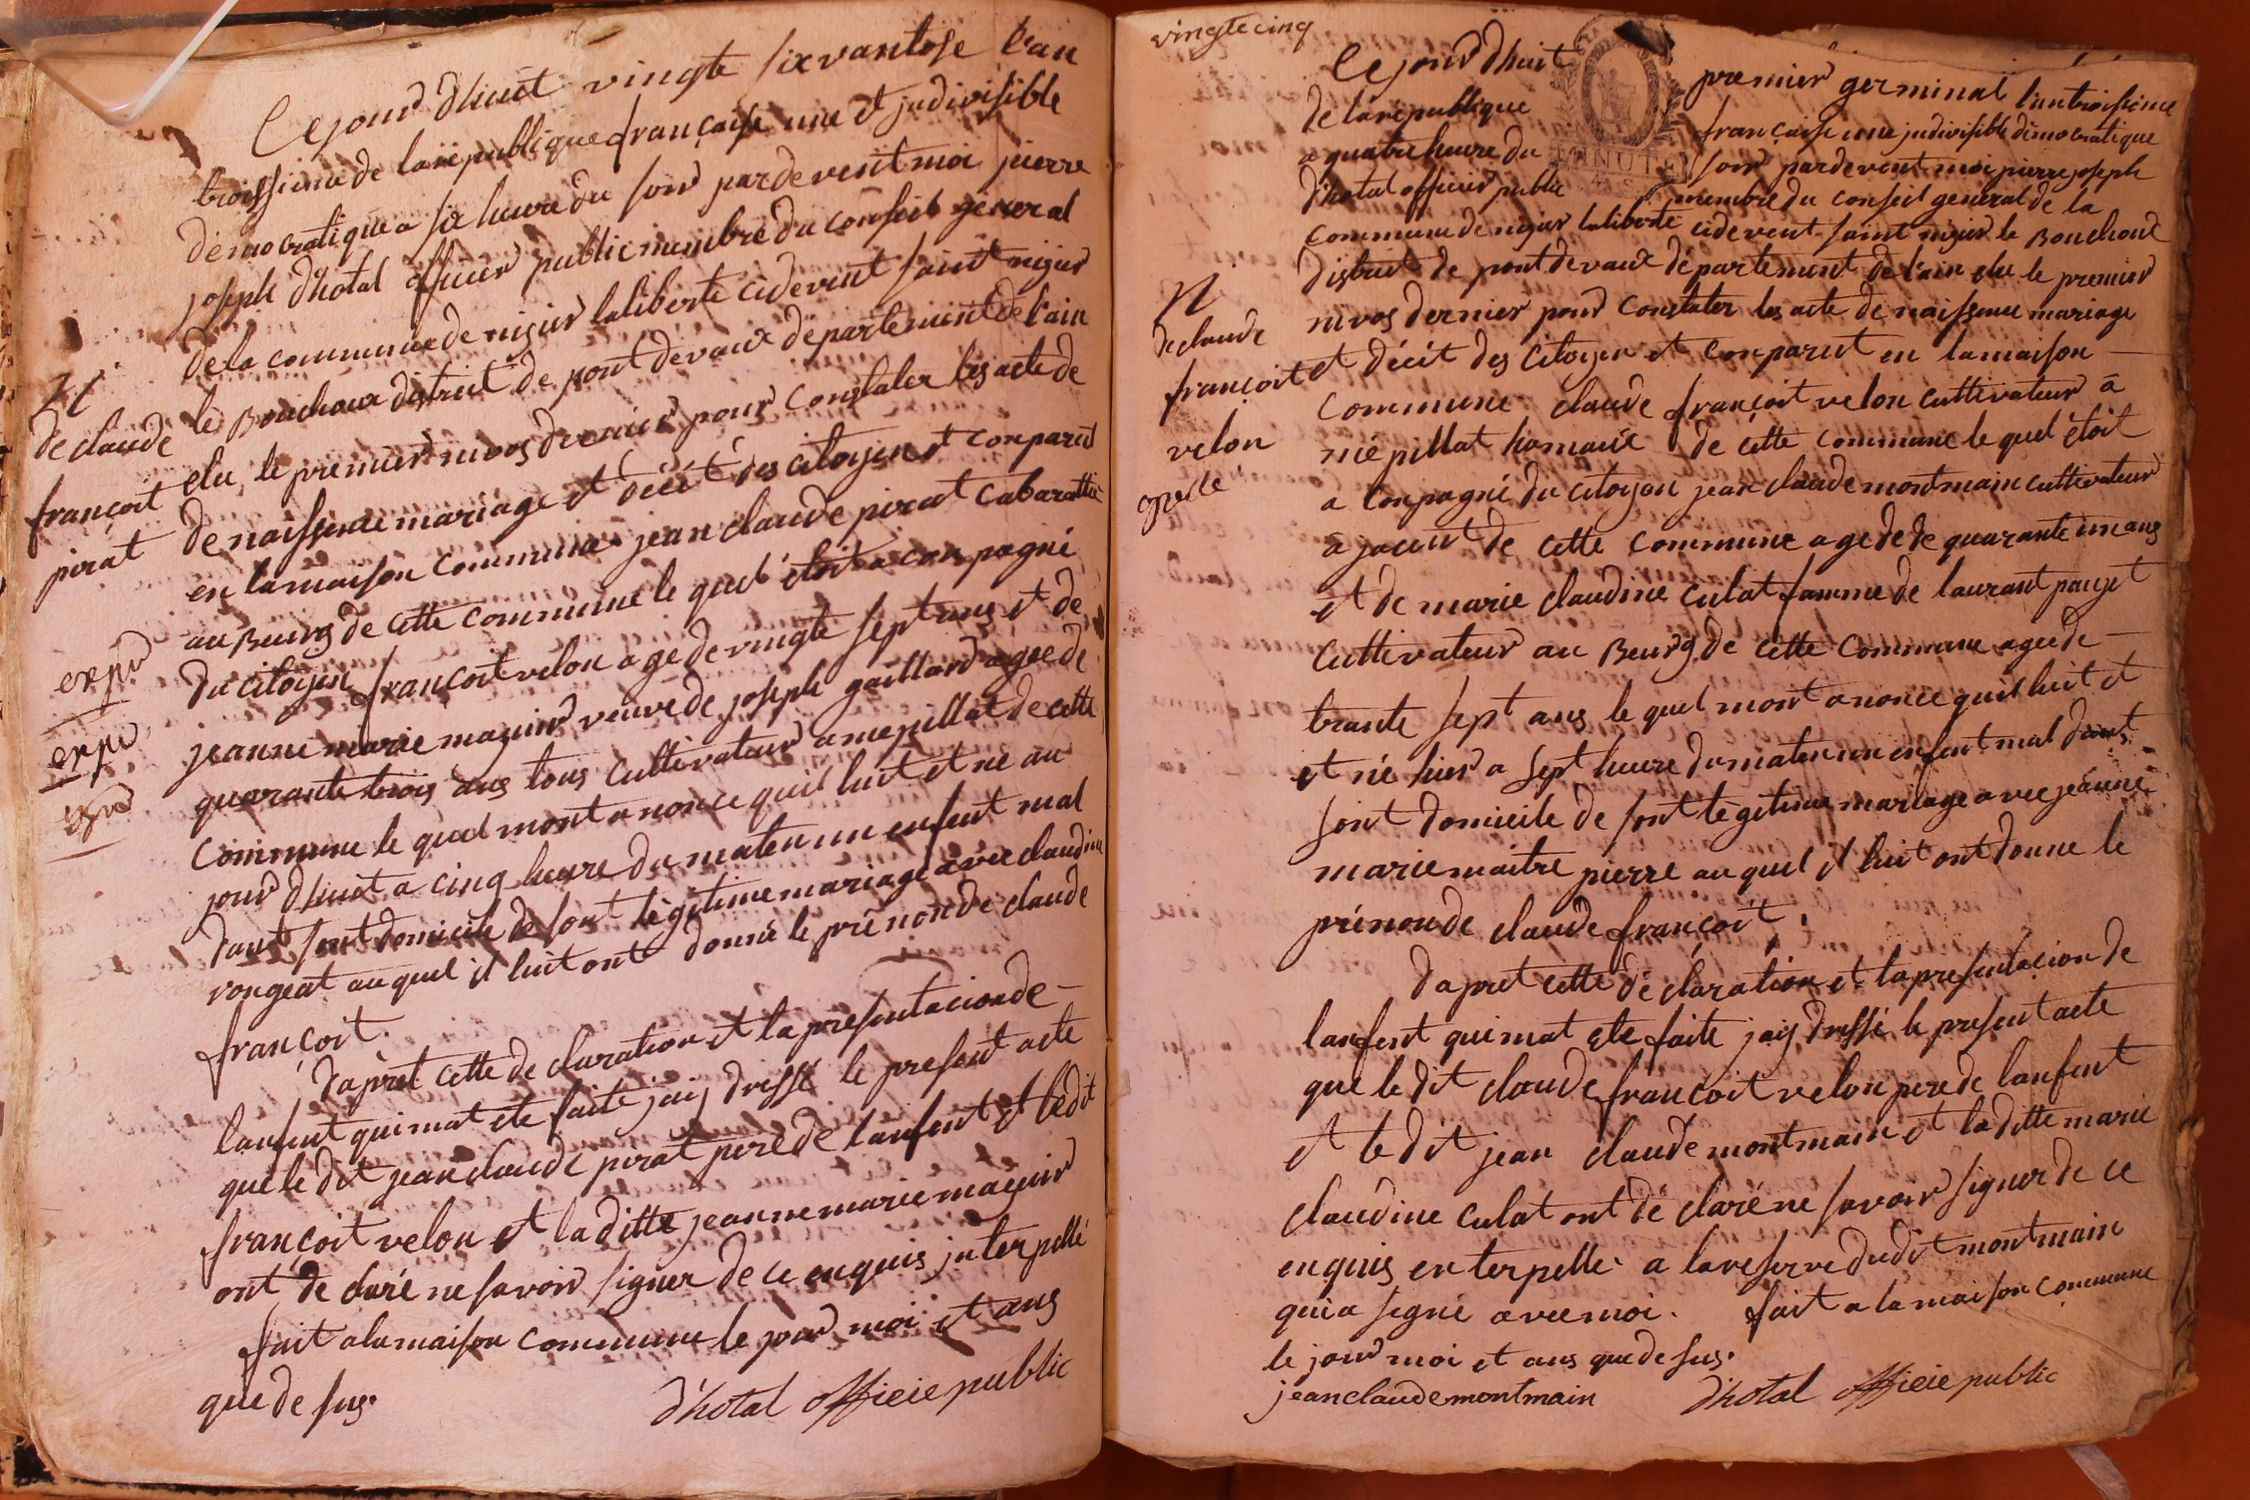 Ce jour dhuit vingte six vantose l'an
troissieme de la republique française une et judivisible
démocratique a six heure du soir pardevent moi pierre
joseph d'hotal officier public membre du conseil general
de la commune de nizier laliberte cidevent saint nizier
le Bouchoux district de pont devaux departement de l'ain
elu le premier nivos dernier pour constater les acte de
de naissence mariage et décét des citoyen et conparut
en la maison commune jean claude pirat cabarattie
au Beurg de cette commune le quel étoit a conpagné
du citoyen françoit velon age de vingte sept ans et de
jeanne marie mazuir veuve de joseph gaillard agée de
quarante trois ans tous cultivateur a mepillat de cette
commune le quel mont anonce quil luit et né au
jour dhuit a cinq heure du maten un enfent mal
dant sont domicile de sont légitime mariage avec claudine
rongeat au quel il luit ont donné le prénon de claude
françoit.
dapret cette de claration et la presentacion de
lanfent qui mat ete faite jaij dressé le present acte
que le dit jean claude pirat pere de lanfent et ledit
françoit velon et la ditte jeanne marie mazuir
ont de claré ne savoir signer de ce enquis jnterpellé
fait a la maison commune le jour moi et ans
que de sus.
d'hotal officie public
N
de claude
françoit
pirat
vingte cinq
Ce jour dhuit premier germinal l'an troissieme
de la republique française une judivisible démocratique
a quatre heure du soir pardevent moi pierre joseph
d'hotal officier public membre du conseil general de la
commune de nizier laliberte cidevent saint nizier le Bouchoux
district de pont devaux département de l'ain elu le premier
nivos dernier pour constater les acte de naissence mariage
et décét des citoyen et conparut en la maison
commune claude françoit velon cultivateur a
mépillat hamaux de cette commune le quel étoit
a conpagné du citoyen jean claude montmain cultivateur
a jacuit de cette commune age de de quarante un ans
et de marie claudine culat famme de laurant pauget
cultivateur au Beurg de cette commune agee de
trante sept ans le quel mont anonce quil luit et
et né hier a sept heure du maten un enfent mal dant
sont domicile de sont légitime mariage avec jeanne
marie maitre pierre au quel il luit ont donne le
prénon de claude françoit.
dapret cette dé claration et la presentacion de
lanfent qui mat ete faite jaij dressé le present acte
que le dit claude françoit velon pere de lanfent
et le dit jean claude montmain et la ditte marie
claudine culat ont dé claré ne savoir signer de ce
enquis enterpellé a la reserve dudit montmain
qui a segné avec moi. fait a la maison commune
le jour moi et ans que de sus.
jean claude montmain d'hotal officie public
N
de claude
françoit
velon